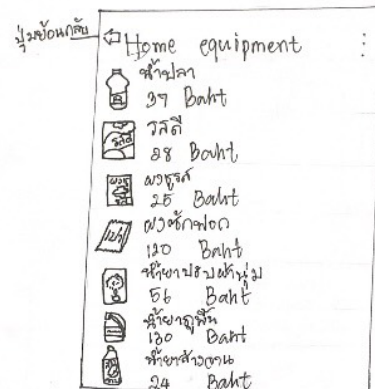 ปุ่มย้อนกลับ
Home equipment
น้ำปลา
37 Baht
รสดี
รสดี
28 Baht
ผงชูรส
ผงชูรส
25 Baht
ผงซักฟอก
เปา
120 Baht
น้ำยาปรับผ้านุ่ม
56 Baht
น้ำยาถูพื้น
130 Baht
น้ำยาล้างจาน
24 Baht